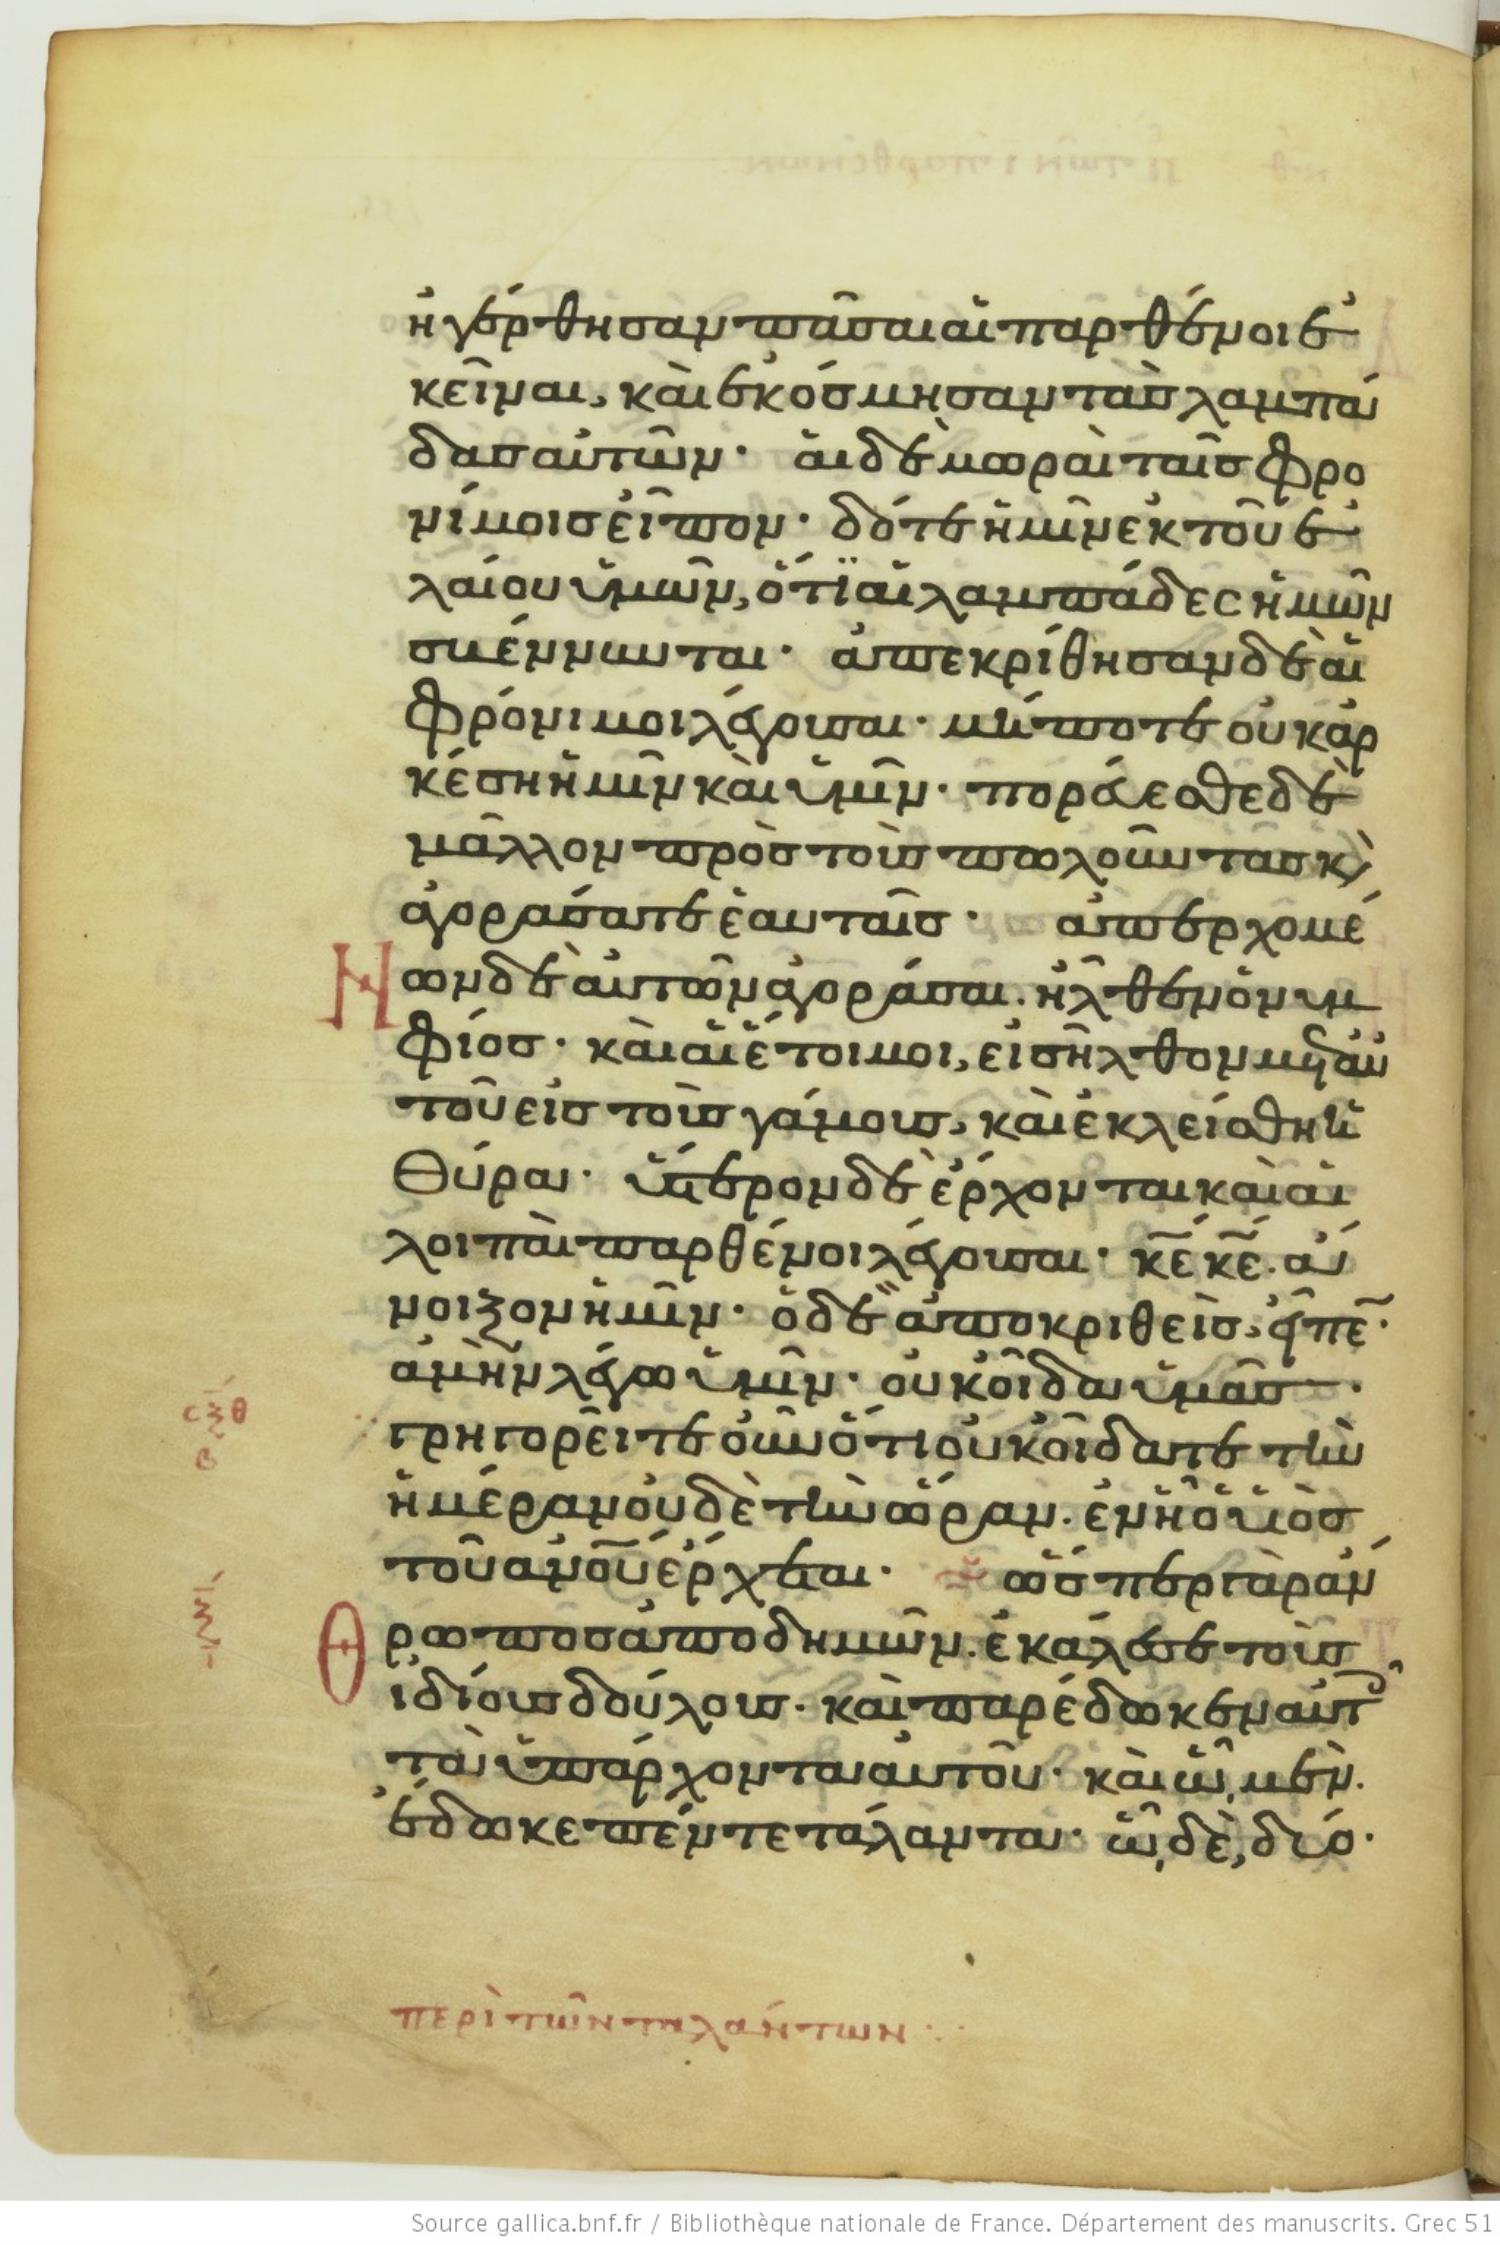 ἠγέρθησαν πᾶσαι αἱ παρθένοι ἐ
κεῖναι, καὶ ἐκόσμησαν τὰς λαμπά
δας αὐτῶν· αἱ δὲ μωραὶ ταῖς φρο
νίμοις εἶπον· δότε ἡμῖν ἐκ τοῦ ἐ
λαίου ὑμῶν, ὅτι αἱ λαμπάδες ἡμῶν
σβέννυνται· ἀπεκρίθησαν δὲ αἱ
φρόνιμοι λέγουσαι· μήποτε οὐκ ἀρ
κέση ἡμῖν καὶ ὑμῖν· πορεύεσθε δὲ
μᾶλλον πρὸς τοὺς πωλοῦντας κ(αὶ)
ἀγοράσατε ἑαυταῖς· ἀπερχομέ
Νων δὲ αὐτῶν ἀγοράσαι. ἦλθεν ὁ νυμ
φίος· καὶ αἱ ἕτοιμοι, εἰσῆλθον μετ αὐ
τοῦ εἰς τοὺς γάμους, καὶ ἐκλείσθη ἡ
θύρα· ὕστερον δὲ ἔρχονται καὶ αἱ
λοιπαὶ παρθένοι λέγουσαι· κε κε. ἄ
νοιξον ἡμῖν· ὁ δὲ ἀποκριθεὶς, εἶπε·
ἀμὴν λέγω ὑμῖν· οὐκ οἶδα ὑμᾶς·
σξθ
β
γρηγορεῖτε οὖν ὅτι οὐκ οἴδατε τὴν
ἡμέραν οὐδὲ τὴν ὥραν. ἐν ἧ ὁ υἱὸς
τοῦ ἀνου ἔρχεται· ὥσπερ γὰρ ἄν
Θρωπος ἀποδημῶν. ἐκάλεσε τοὺς
ἰδίους δούλους· καὶ παρέδωκεν αὐτ(οῖς)
τὰ ὑπάρχοντα αὐτοῦ· καὶ ὧ, μὲν.
ἔδωκε πέντε τάλαντα· ὧ, δὲ, δύο·
περὶ τῶν ταλάντων